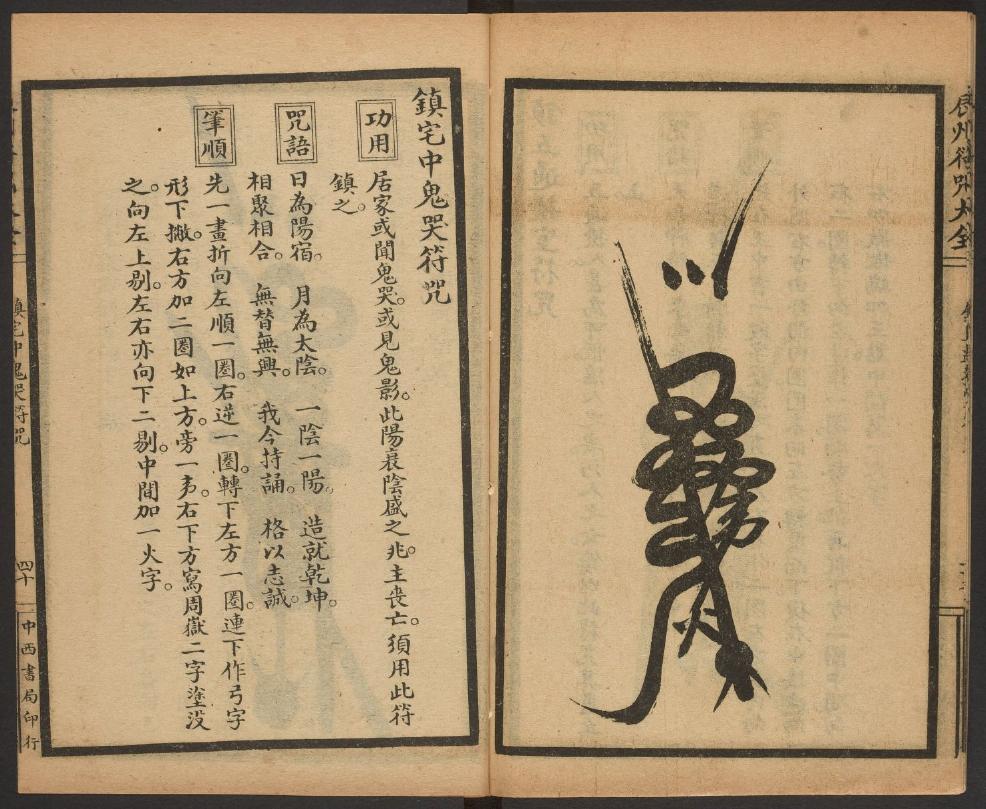 辰州符咒大全
鎮宅中鬼哭符咒
功用
居家或聞鬼哭。或見鬼影。此陽衰陰盛之兆。主喪亡。須用此符
鎮之。
咒語
日為陽宿。月為太陰。一陰一陽。造就乾坤。
相聚相合。無替無興。我今持誦。格以志誠。
筆順
先一畫折向左順一圈。右逆一圈。轉下左方一圈。連下作弓字
形下撇。右方加二圈如上方。旁一歹。右下方寫周嶽二字塗沒
之。向左上剔。左右亦向下二剔。中間加一火字。
鎮宅中鬼哭符咒
四十
中西書局印行